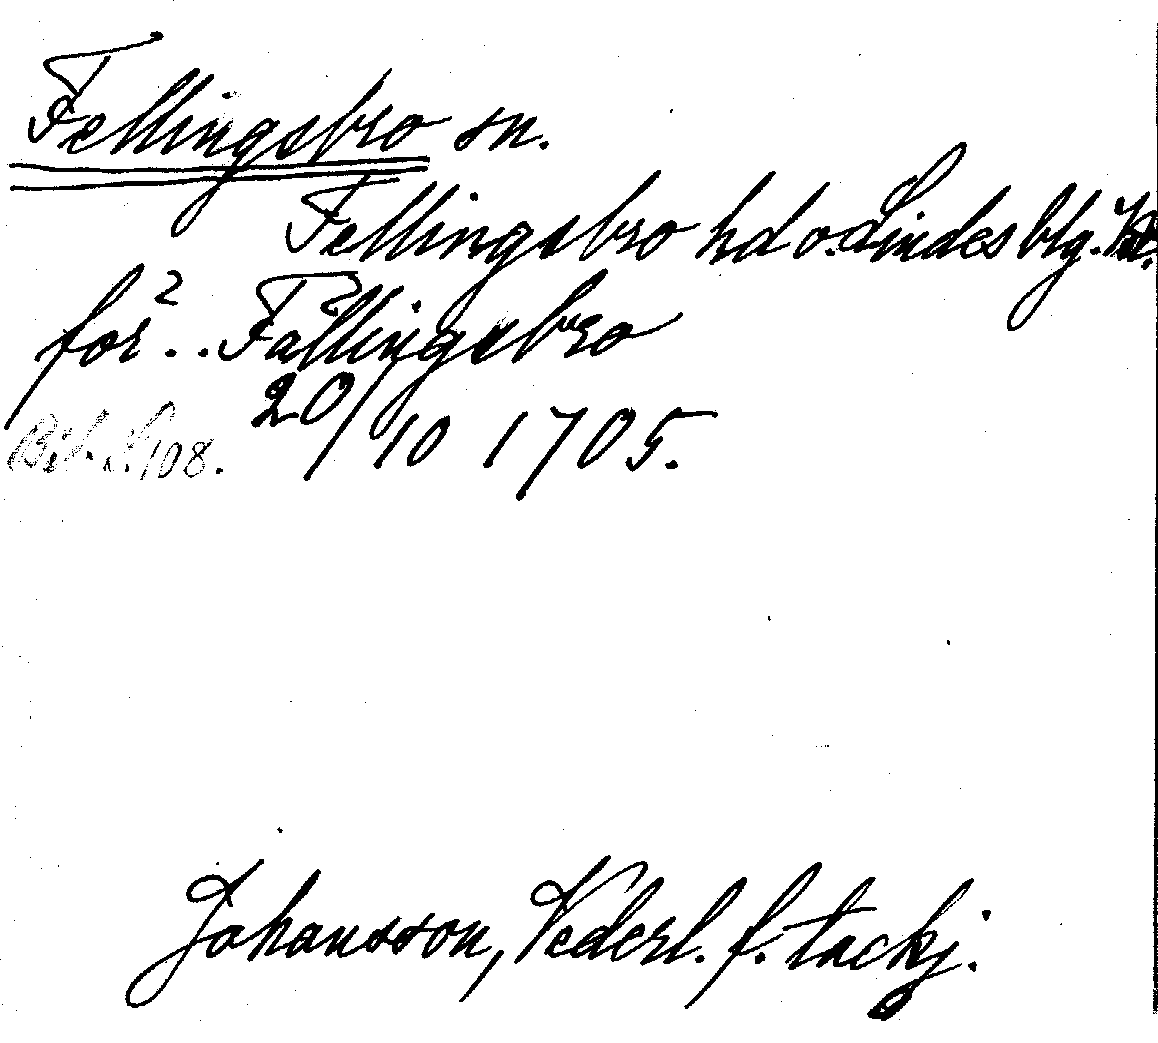 Fellingsbro sn.
Fellingsbro hd o. Lindes blg.
för 2 . . Fällingsbro
20/10 1705.
Bil. S. 108.
Johansson, Vederl. f. tackj.